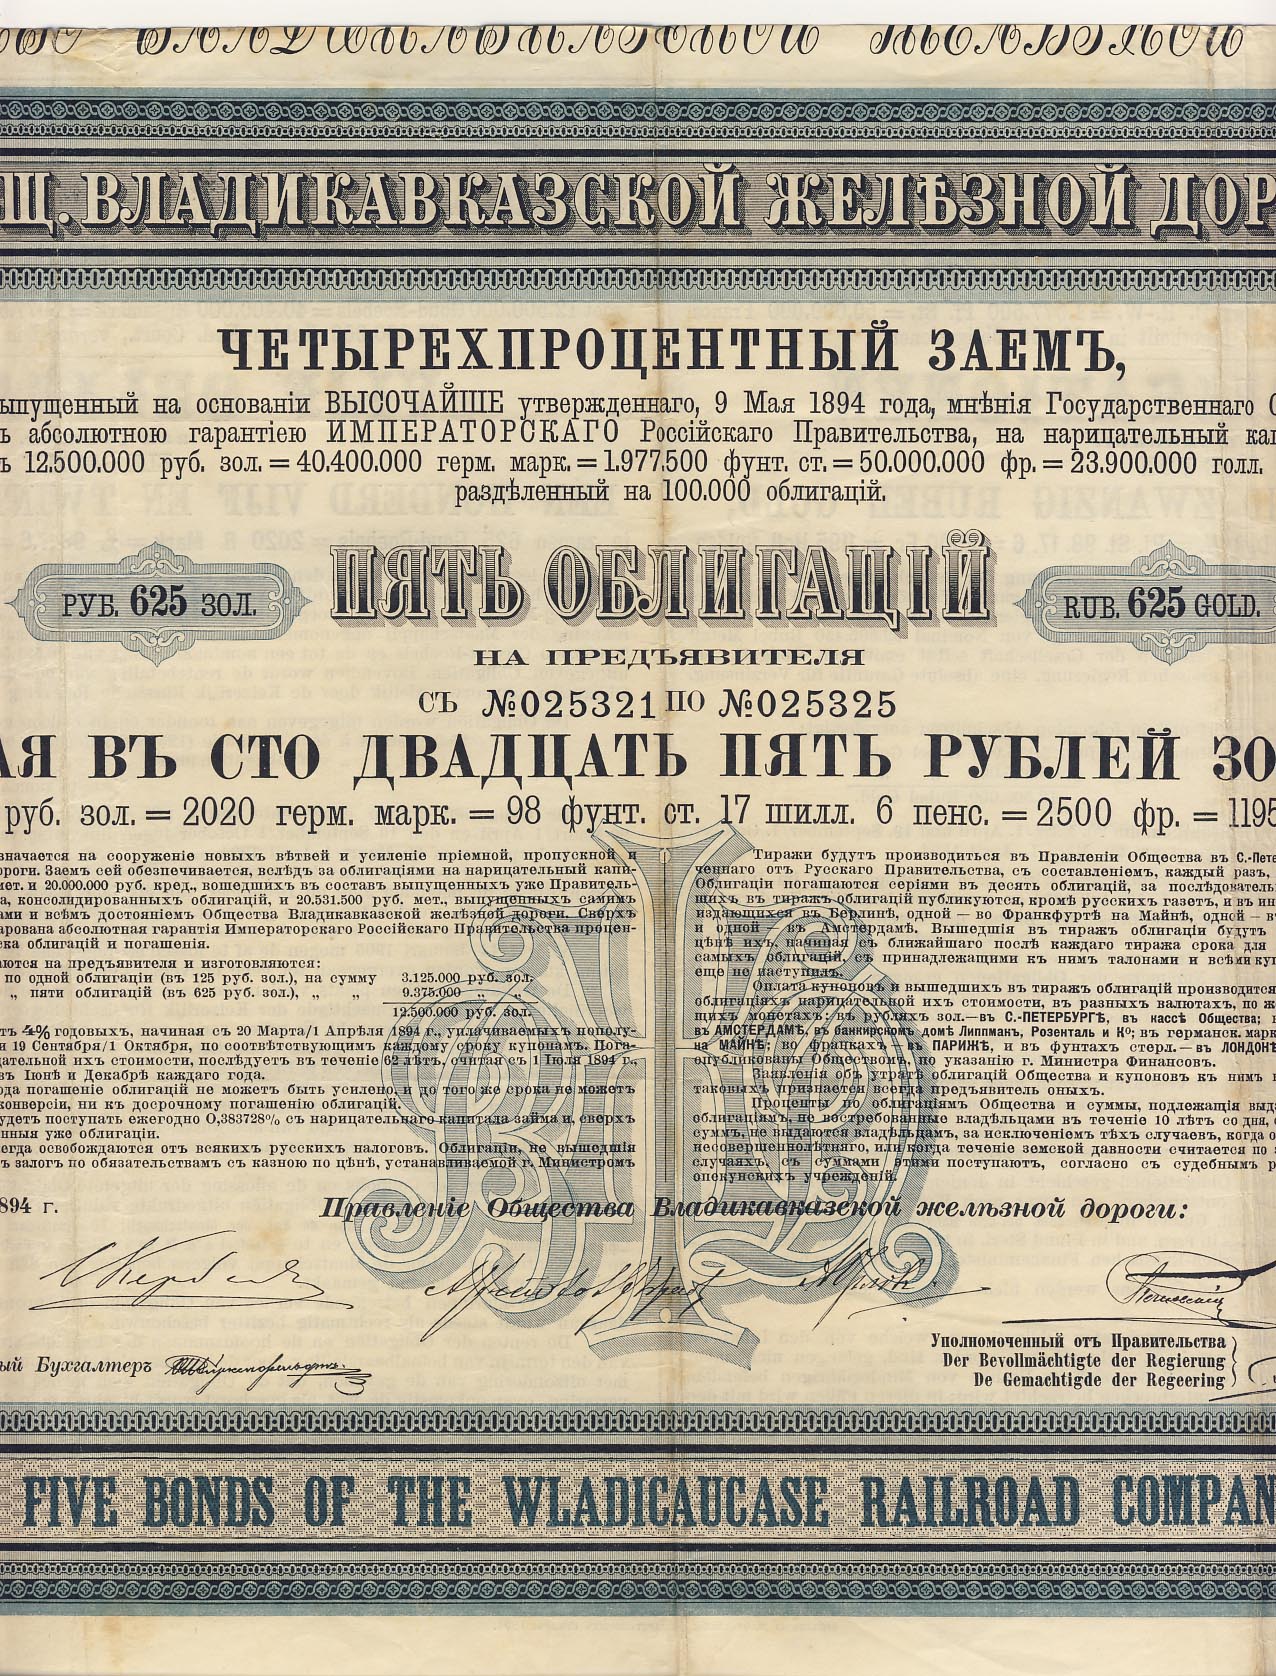 Щ. ВЛАДИКАВКАЗСКОЙ ЖЕЛѢЗНОЙ ДОР
ЧЕТЫРЕХПРОЦЕНТНЫЙ ЗАЕМЪ,
ыпущенный на основаніи ВЫСОЧАЙШЕ утвержденнаго, 9 Мая 1894 года, мнѣнія Государственнаго С
ъ абсолютною гарантіею ИМПЕРАТОРСКАГО Россійскаго Правительства, на нарицательный кап
ъ 12.500.000 руб. зол. = 40.400.000 герм. марк. = 1.977.500 фунт. ст. = 50.000.000 фр. = 23.900.000 голл.
раздѣленный на 100.000 облигацій.
РУБ. 625 ЗОЛ.
ПЯТЬ ОБЛИГАЦІЙ
RUB. 625 GOLD.
НА ПРЕДЪЯВИТЕЛЯ
СЪ №025321 ПО №025325
АЯ ВЪ СТО ДВАДЦАТЬ ПЯТЬ РУБЛЕЙ ЗО
руб. зол. = 2020 герм. марк. = 98 фунт. ст. 17 шилл. 6 пенс. = 2500 фр. = 1195
значается на сооруженіе новыхъ вѣтвей и усиленіе пріемной, пропускной и
ороги. Заемъ сей обезпечивается, вслѣдъ за облигаціями на нарицательный капи-
мет. и 20.000.000 руб. кред., вошедшихъ въ составъ выпущенныхъ уже Правитель-
а, консолидированныхъ облигацій, и 20.531.500 руб. мет., выпущенныхъ самимъ
ами и всѣмъ достояніемъ Общества Владикавказской желѣзной дороги. Сверхъ
арована абсолютная гарантія Императорскаго Россійскаго Правительства процен-
ска облигацій и погашенія.
аются на предъявителя и изготовляются:
по одной облигаціи (въ 125 руб. зол.), на сумму 3.125.000 руб. зол.
„ пяти облигацій (въ 625 руб. зол.), „ „ 9.375.000 „ „
12.500.000 руб. зол.
тъ 4% годовыхъ, начиная съ 20 Марта/1 Апрѣля 1894 г., уплачиваемыхъ полугу-
и 19 Сентября/1 Октября, по соотвѣтствующимъ каждому сроку купонамъ. Пога-
цательной ихъ стоимости, послѣдуетъ въ теченіе 62 лѣтъ, считая съ 1 Іюля 1894 г.,
въ Іюнѣ и Декабрѣ каждаго года.
ода погашеніе облигацій не можетъ быть усилено, и до того же срока не можетъ
конверсіи, ни къ досрочному погашенію облигацій.
удетъ поступать ежегодно 0,383728% съ нарицательнаго капитала займа и, сверхъ
нныя уже облигаціи.
егда освобождаются отъ всякихъ русскихъ налоговъ. Облигаціи, не вышедшія
ъ залогъ по обязательствамъ съ казною по цѣнѣ, устанавливаемой г. Министромъ
Тиражи будутъ производиться въ Правленіи Общества въ С.-Пете
ченнаго отъ Русскаго Правительства, съ составленіемъ, каждый разъ,
Облигаціи погашаются серіями въ десять облигацій, за послѣдовательн
шихъ въ тиражъ облигацій публикуются, кромѣ русскихъ газетъ, и въ ин
издающихся въ Берлинѣ, одной — во Франкфуртѣ на Майнѣ, одной — въ
и одной — въ Амстердамѣ. Вышедшія въ тиражъ облигаціи будутъ
цѣнѣ ихъ, начиная съ ближайшаго послѣ каждаго тиража срока для
самыхъ облигацій, съ принадлежащими къ нимъ талонами и всѣми куп
еще не наступилъ.
Оплата купоновъ и вышедшихъ въ тиражъ облигацій производится
облигаціяхъ нарицательной ихъ стоимости, въ разныхъ валютахъ, по ж
щихъ монетахъ: въ рубляхъ зол.—въ С.-ПЕТЕРБУРГѢ, въ кассѣ Общества;
въ АМСТЕРДАМѢ, въ банкирскомъ домѣ Липпманъ, Розенталь и Ко; въ германск. марк
на МАЙНѢ; во франкахъ — въ ПАРИЖѢ, и въ фунтахъ стерл.—въ ЛОНДОНѢ
опубликованы Обществомъ, по указанію г. Министра Финансовъ.
Заявленія объ утратѣ облигацій Общества и купоновъ къ нимъ
таковыхъ признается всегда предъявитель оныхъ.
Проценты по облигаціямъ Общества и суммы, подлежащія выд
облигаціямъ, не востребованные владѣльцами въ теченіе 10 лѣтъ со дня,
суммъ, не выдаются владѣльцамъ, за исключеніемъ тѣхъ случаевъ, когда о
несовершеннолѣтняго, или когда теченіе земской давности считается по
случаяхъ, съ суммами этими поступаютъ, согласно съ судебнымъ р
опекунскихъ учрежденій.
894 г.
Правленіе Общества Владикавказской желѣзной дороги:
ый Бухгалтеръ
Уполномоченный отъ Правительства
Der Bevollmächtigte der Regierung
De Gemachtigde der Regeering
FIVE BONDS OF THE WLADICAUCASE RAILROAD COMPAN